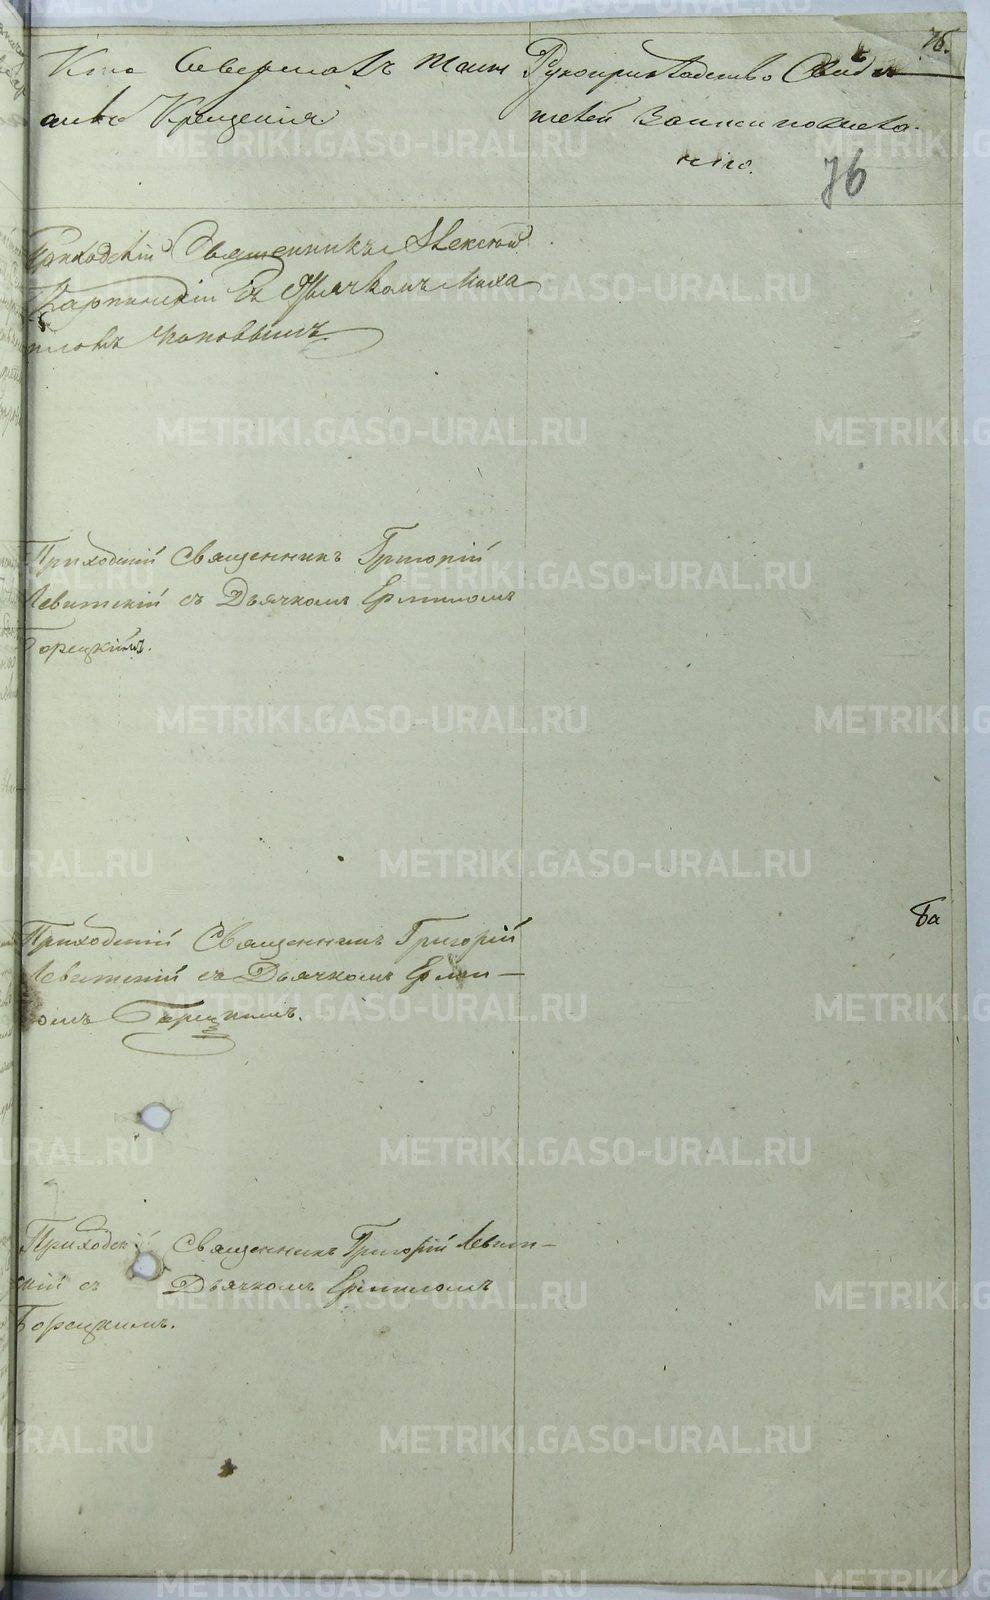 76.
Кто совершалъ таин
ство Крещенія
Рукоприкладство Свидѣ
телей Записи по жела
нію.
76
Приходскій Священникъ Алексей
Карпинскій съ Дьячкомъ Миха
иломъ Поповымъ
Приходскій Священникъ Григорій
Левитскій съ Дьячкомъ Ермиломъ
Борецкимъ.
Приходскій Священникъ Григорій
Левитскій съ Дьячкомъ Ерми—
ломъ Борецкимъ.
Приходскій Священникъ Григорій Левит—
скій съ Дьячкомъ Ермиломъ
Борецкимъ.
METRIKI.GASO-URAL.RU